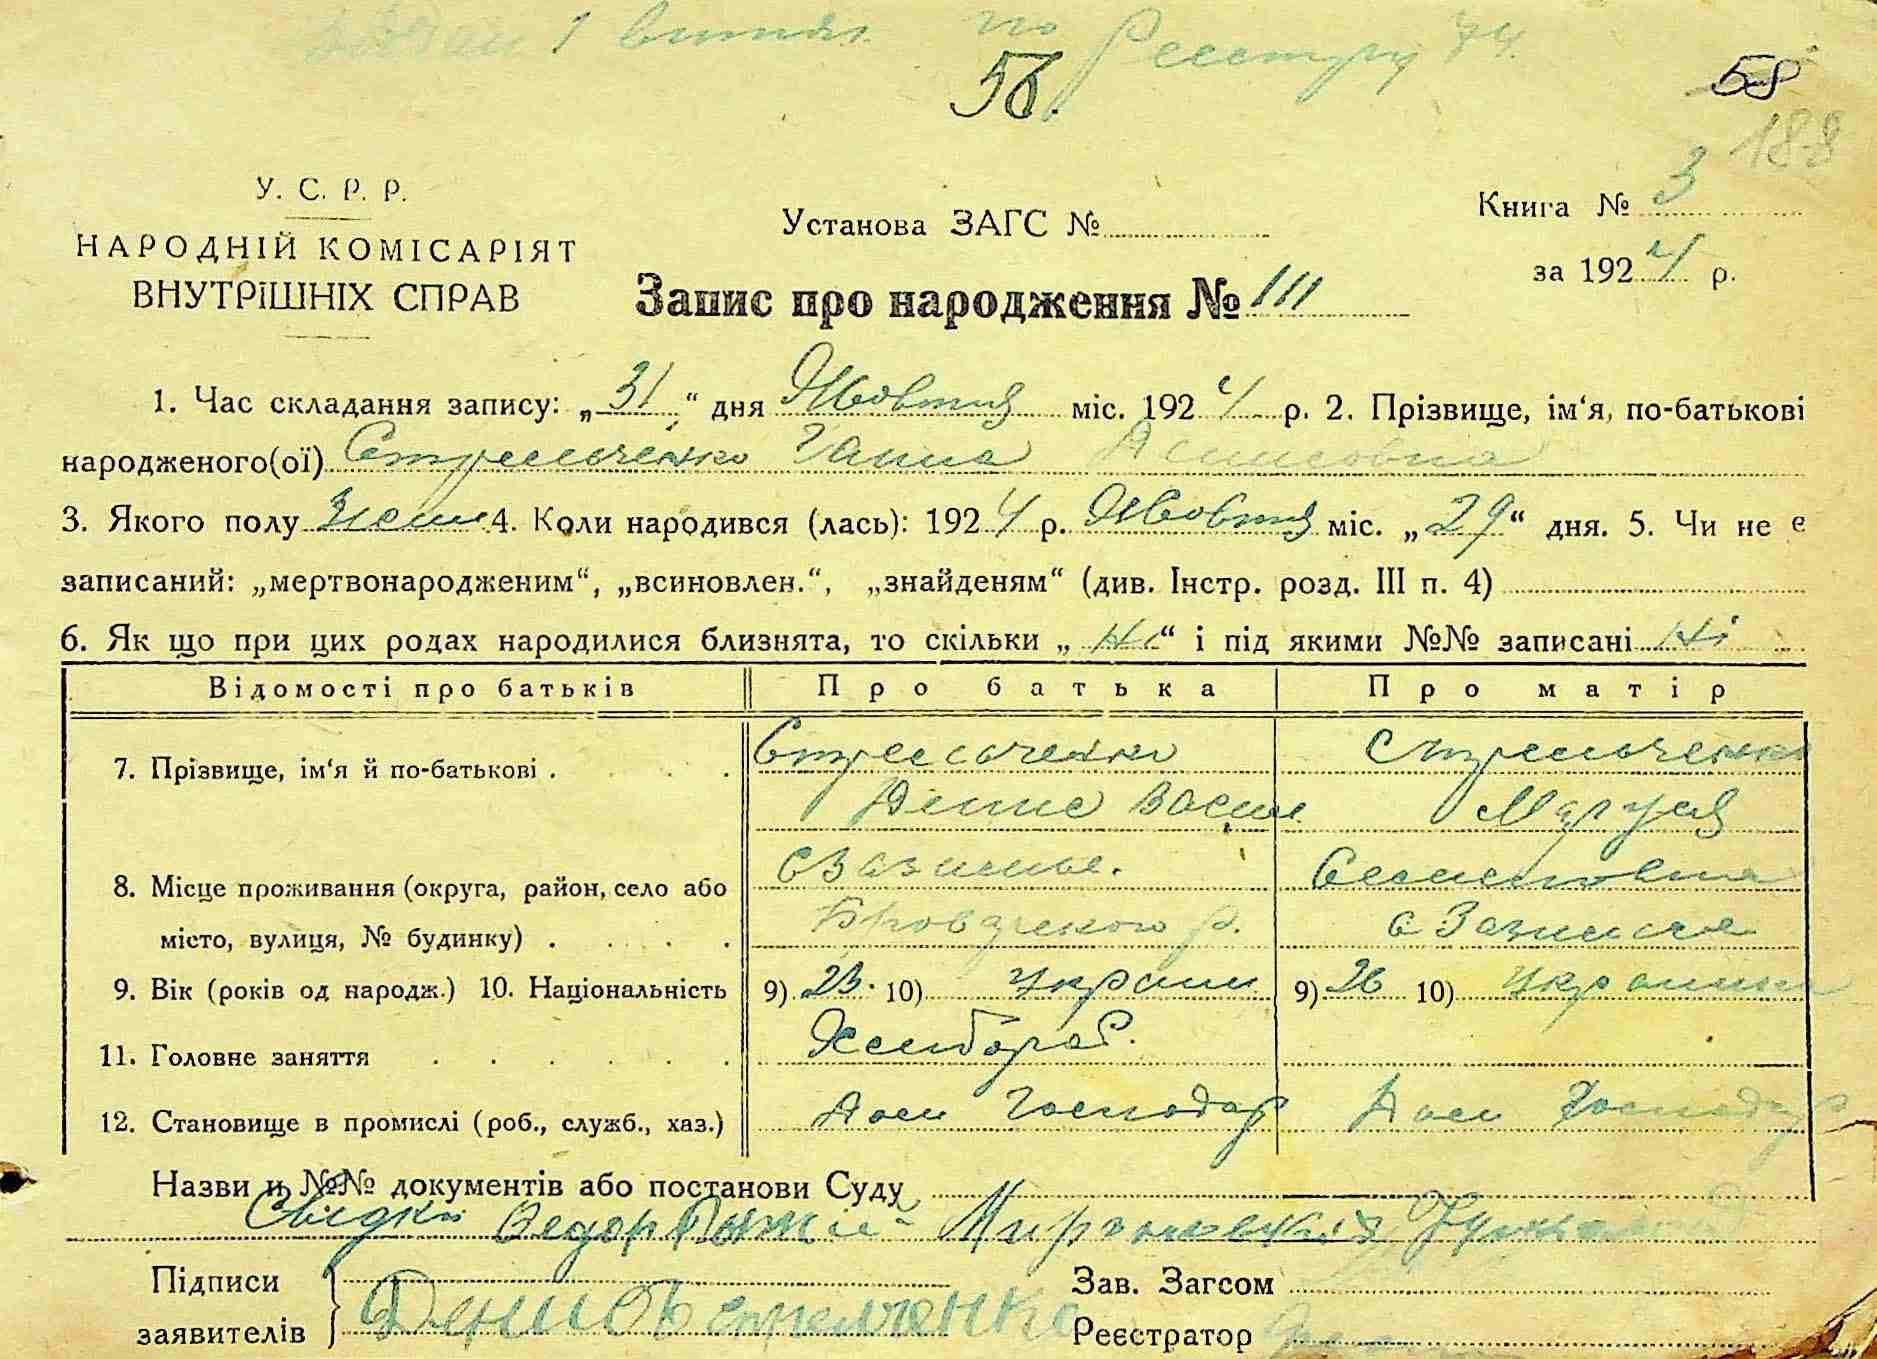 1 витяг по Реестру 74.
56.
58
188
У. С. Р. Р.
НАРОДНІЙ КОМІСАРІЯТ
ВНУТРІШНІХ СПРАВ
Установа ЗАГС №
Книга № 3
за 1924 р.
Запис про народження № 111
1. Час складання запису: „31“ дня Жовтня міс. 1924 р. 2. Прізвище, ім‘я, по-батькові
народженого(ої) Стрельченко Ганна Денисовна
3. Якого полу жен 4. Коли народився (лась): 1924 р. Жовтня міс. „29“ дня. 5. Чи не є
записаний: „мертвонародженим“, „всиновлен.“, „знайденям“ (див. Інстр. розд. III п. 4)
6. Як що при цих родах народилися близнята, то скільки „Ні“ і під якими №№ записані Ні
Відомості про батьків Про батька Про матір
7. Прізвище, ім‘я й по-батькові . . . . Стрельченко Стрельченко
Денис Васил Маруся
8. Місце проживання (округа, район, село або с Зазимье. Семеновна
місто, вулиця, № будинку) . . . . Броварского р. с Зазимья
9. Вік (років од народж.) 10. Національність 9) 23. 10) Украин 9) 26 10) Украинка
11. Головне заняття . . . . . . Хлебороб.
12. Становище в промислі (роб., служб., хаз.) Дом Господар Дом Господар
Назви и №№ документів або постанови Суду
Свідки Федор Рыжий
Підписи
заявителів Денис Стрельченко
Зав. Загсом
Реєстратор